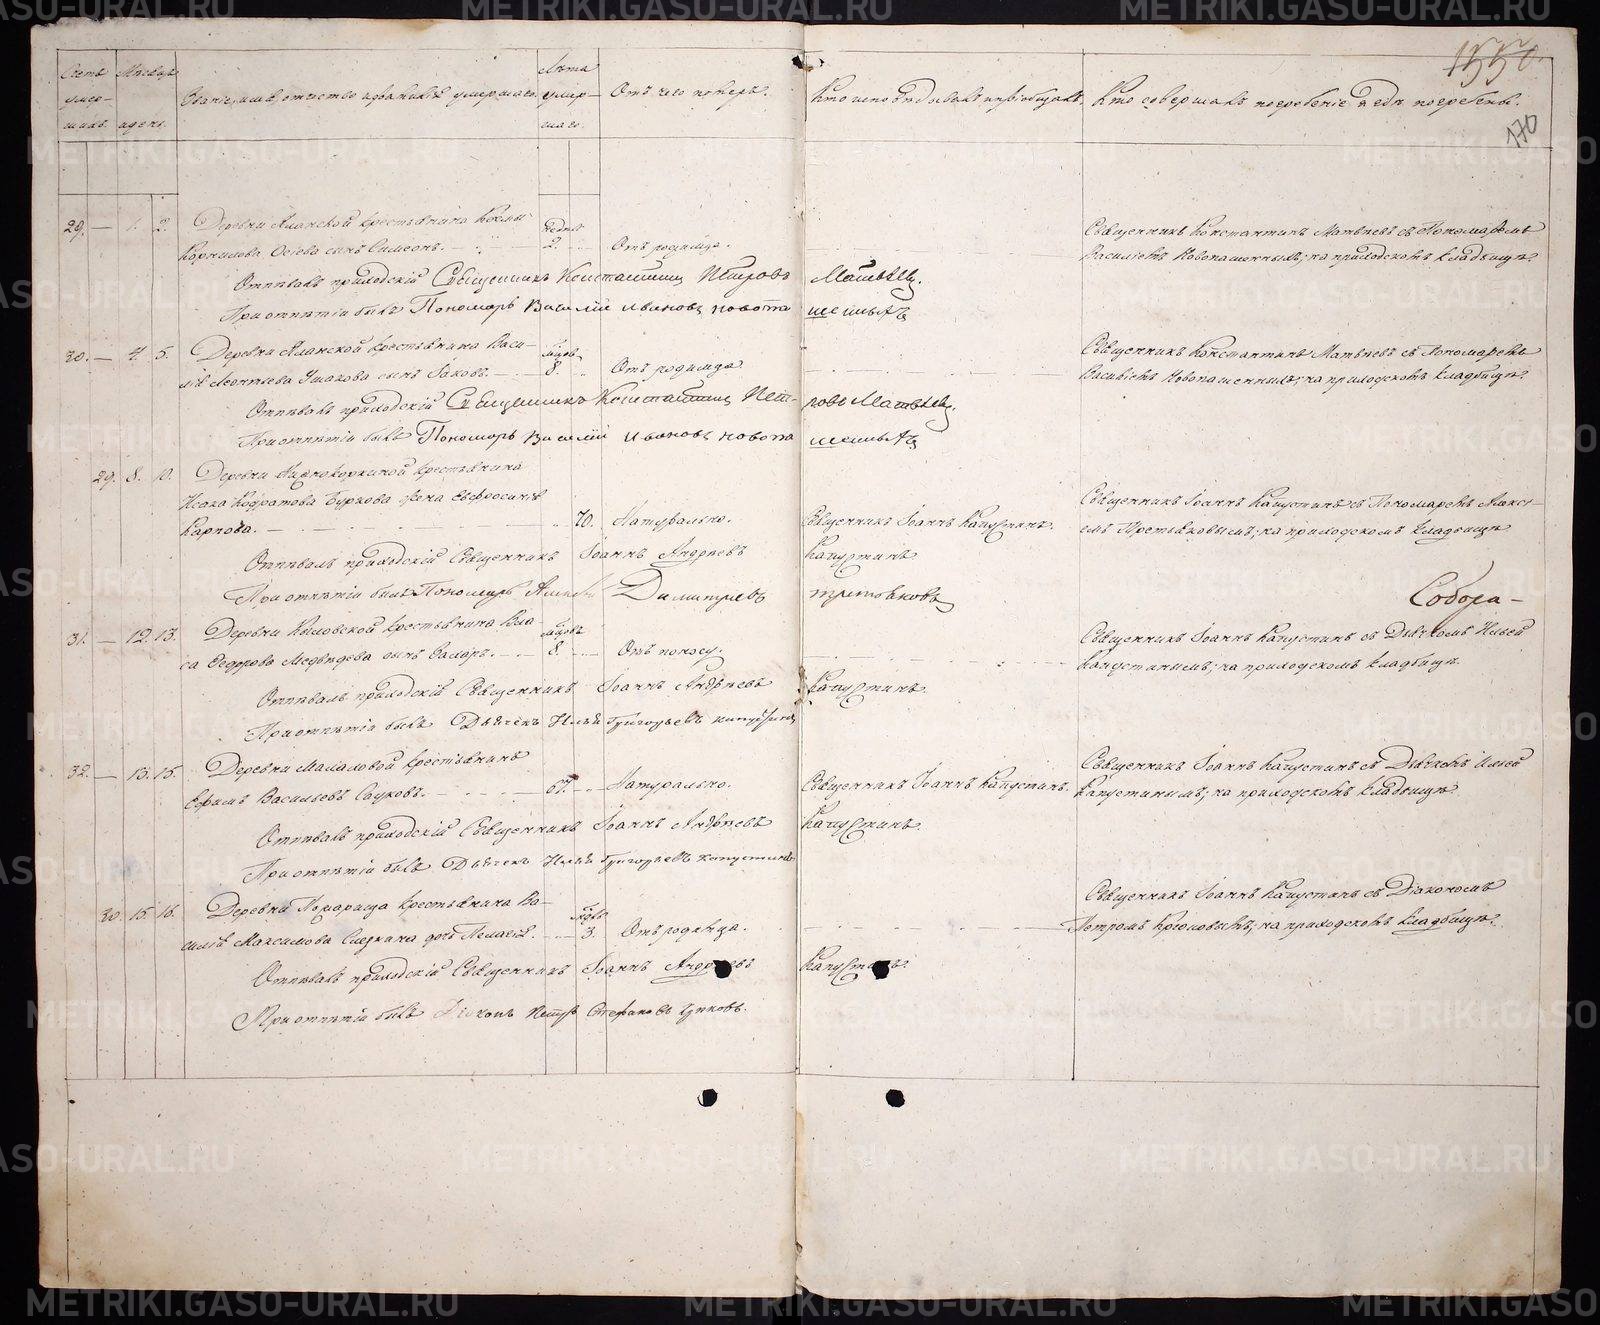 1550.
170
Счетъ умер-шихъ.
Мѣсяцъ и день.
Званіе, имя, отчество и фамилія умершаго.
Лѣта умер-шаго.
Отъ чего померъ.
Кто исповѣдывалъ и пріобщалъ.
Кто совершалъ погребеніе и гдѣ погребены.
29. — 1. 2. Деревни Аланской крестьянина Козмы
Корнилова Осіева сынъ Симеонъ. — недѣль 2. Отъ родимца.
Священникъ Константинъ Матвѣевъ съ Пономаремъ
Василіемъ Новопашеннымъ; на приходскомъ кладбищѣ.
Отпѣвалъ приходскій Священникъ Константинъ Петровъ Матвѣевъ.
При отпѣтіи былъ Пономарь Василій Ивановъ Новопашенныхъ
30. — 4. 5. Деревни Аланской крестьянина Васи-
лія Леонтьева Ушакова сынъ Іаковъ. — мѣсяцовъ 8. Отъ родимца
Священникъ Константинъ Матвѣевъ съ Пономаремъ
Василіемъ Новопашеннымъ; на приходскомъ кладбищѣ.
Отпѣвалъ приходскій Священникъ Константинъ Пет-ровъ Матвѣевъ.
При отпѣтіи былъ Пономарь Василій Ивановъ Новопашенныхъ
29. 8. 10. Деревни крестьянина
Исака Кодратова Буркова жена Евфросинія
Карпова. — 70. Натурально. Священникъ Іоаннъ Капустинъ.
Священникъ Іоаннъ Капустинъ съ Пономаремъ Алексі-
емъ Третьяковымъ; на приходскомъ кладбищѣ
Отпѣвалъ приходскій Священникъ Іоаннъ Андреевъ Капустинъ
При отпѣтіи былъ Пономарь Алексѣй Димитріевъ Третьяковъ
Собора-
31. — 12. 13. Деревни Кыловской крестьянина Вла-
са Федорова Медвѣдева сынъ — мѣсяцовъ 8. Отъ поносу.
Священникъ Іоаннъ Капустинъ съ Дьячкомъ Ильей
Капустинымъ; на приходскомъ кладбищѣ
Отпѣвалъ приходскій Священникъ Іоаннъ Андреевъ Капустинъ.
При отпѣтіи былъ Дьячекъ Илья Григорьевъ Капустинъ
32. — 13. 15. Деревни Маламовой крестьянинъ
Ефимъ Васильевъ — 67. Натурально. Священникъ Іоаннъ Капустинъ.
Священникъ Іоаннъ Капустинъ съ Дьячкомъ Ильей
Капустинымъ; на приходскомъ кладбищѣ
Отпѣвалъ приходскій Священникъ Іоаннъ Андреевъ Капустинъ.
При отпѣтіи былъ Дьячекъ Илья Григорьевъ Капустинъ
30. 15. 16. Деревни крестьянина Ва-
силія Максимова дочь Пелагія. — 3. Отъ родимца.
Священникъ Іоаннъ Капустинъ съ Діакономъ
Петромъ на приходскомъ кладбищѣ.
Отпѣвалъ приходскій Священникъ Іоаннъ Андреевъ Капустинъ.
При отпѣтіи былъ Діаконъ Петръ Стефановъ
METRIKI.GASO-URAL.RU